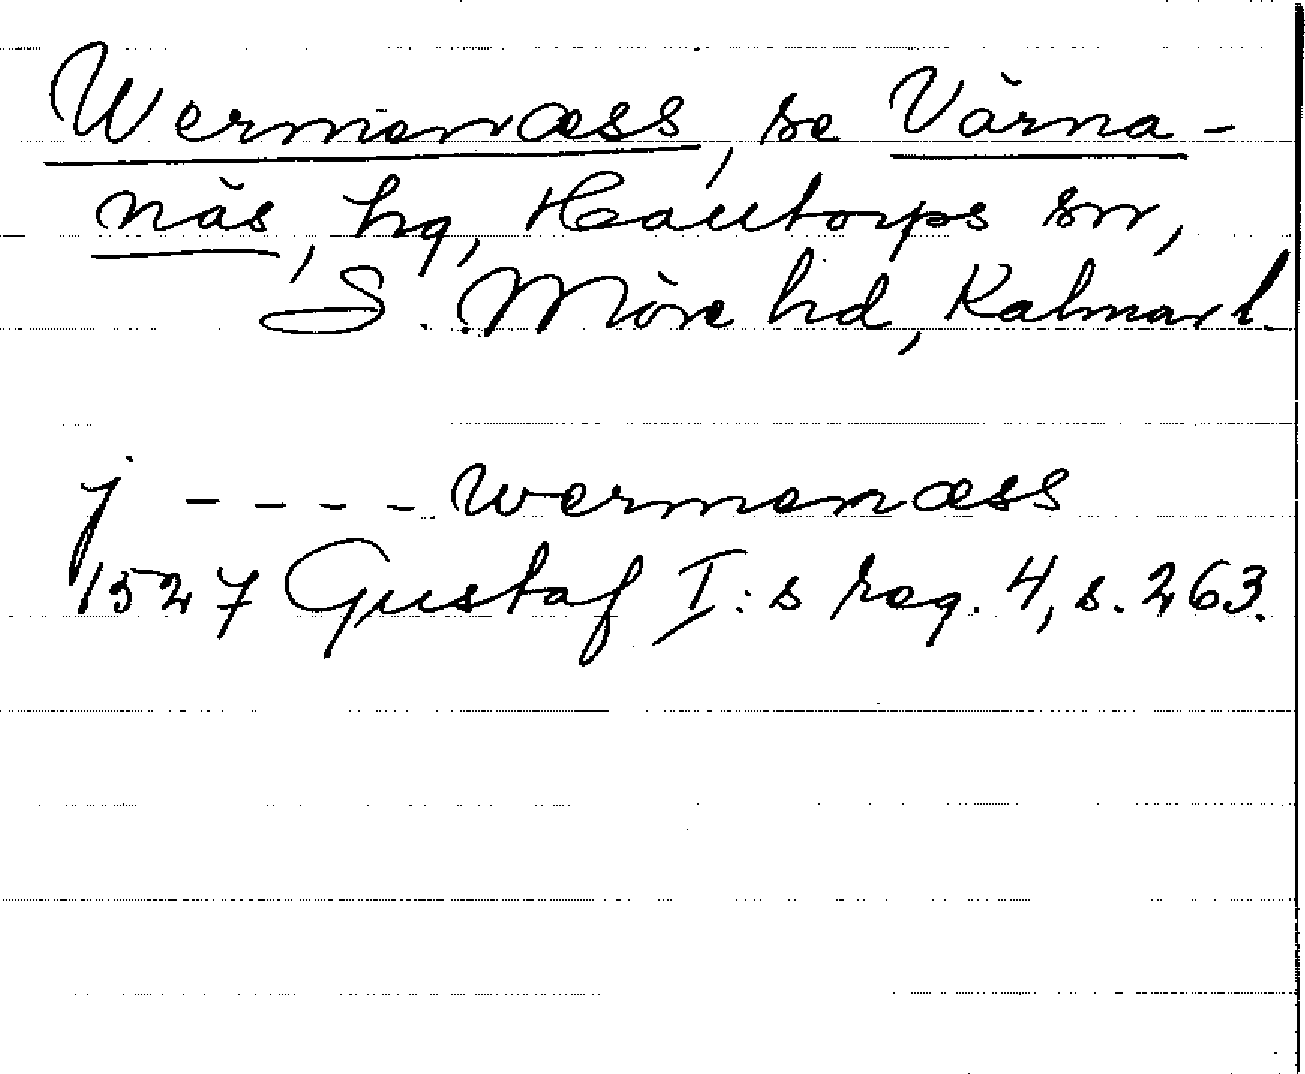 Wermenæss, se Värna-
näs, hg, Halltorps sn,
S. Möre hd, Kalmar l.
j - - - - wermenæss
1527 Gustaf I:s reg. 4, s. 263.